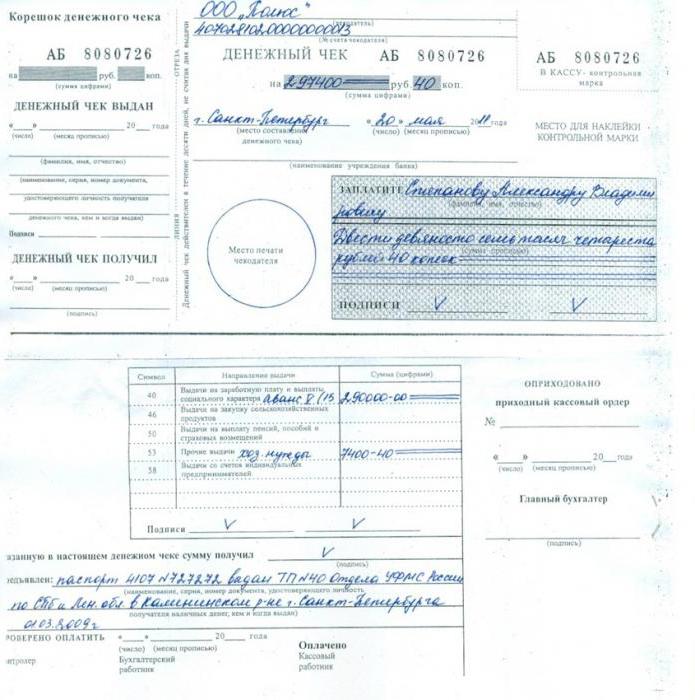 Корешок денежного чека
АБ 8080726
на руб. коп.
(сумма цифрами)
ДЕНЕЖНЫЙ ЧЕК ВЫДАН
« » 20 года
(число) (месяц прописью)
(фамилия, имя, отчество)
(наименование, серия, номер документа,
удостоверяющего личность получателя
денежного чека, кем и когда выдан)
Подписи
ДЕНЕЖНЫЙ ЧЕК ПОЛУЧИЛ
« » 20 года
(число) (месяц прописью)
(подпись)
ЛИНИЯ ОТРЕЗА
Денежный чек действителен в течение десяти дней, не считая дня выдачи
ООО „Полюс"
(чекодатель)
(№ счета чекодателя)
ДЕНЕЖНЫЙ ЧЕК АБ 8080726
на 297400 руб. 40 коп.
(сумма цифрами)
г. Санкт-Петербург « 20 » мая 2011 года
(место составления денежного чека) (число) (месяц прописью)
(наименование учреждения банка)
АБ 8080726
В КАССУ- контрольная
марка
МЕСТО ДЛЯ НАКЛЕЙКИ
КОНТРОЛЬНОЙ МАРКИ
Место печати
чекодателя
ЗАПЛАТИТЕ Степанову Александру Владими
(фамилия, имя, отчество)
ровичу
Двести девяносто семь тысяч четыреста
(сумма прописью)
рублей 40 копеек
ПОДПИСИ V V
Символ Направления выдачи Сумма (цифрами)
40 Выдачи на заработную плату и выплаты
социального характера аванс 290000-00
46 Выдачи на закупку сельскохозяйственных
продуктов
50 Выдачи на выплату пенсий, пособий и
страховых возмещений
53 Прочие выдачи хоз. нужды 7400-40
58 Выдачи со счетов индивидуальных
предпринимателей
Подписи V V
ОПРИХОДОВАНО
приходный кассовый ордер
№
« » 20 года
(число) (месяц прописью)
Главный бухгалтер
(подпись)
азанную в настоящем денежном чеке сумму получил V
(подпись)
едъявлен: паспорт 4107 N727272 выдан ТП N40 Отдела УФМС России
(наименование, серия, номер документа, удостоверяющего личность
по СПб и Лен. обл в Калининском р-не г. Санкт-Петербурга
получателя наличных денег, кем и когда выдан)
01.03.2009г
РОВЕРЕНО ОПЛАТИТЬ « » 20 года
(число) (месяц прописью)
Оплачено
нтролер Бухгалтерский Кассовый
работник работник